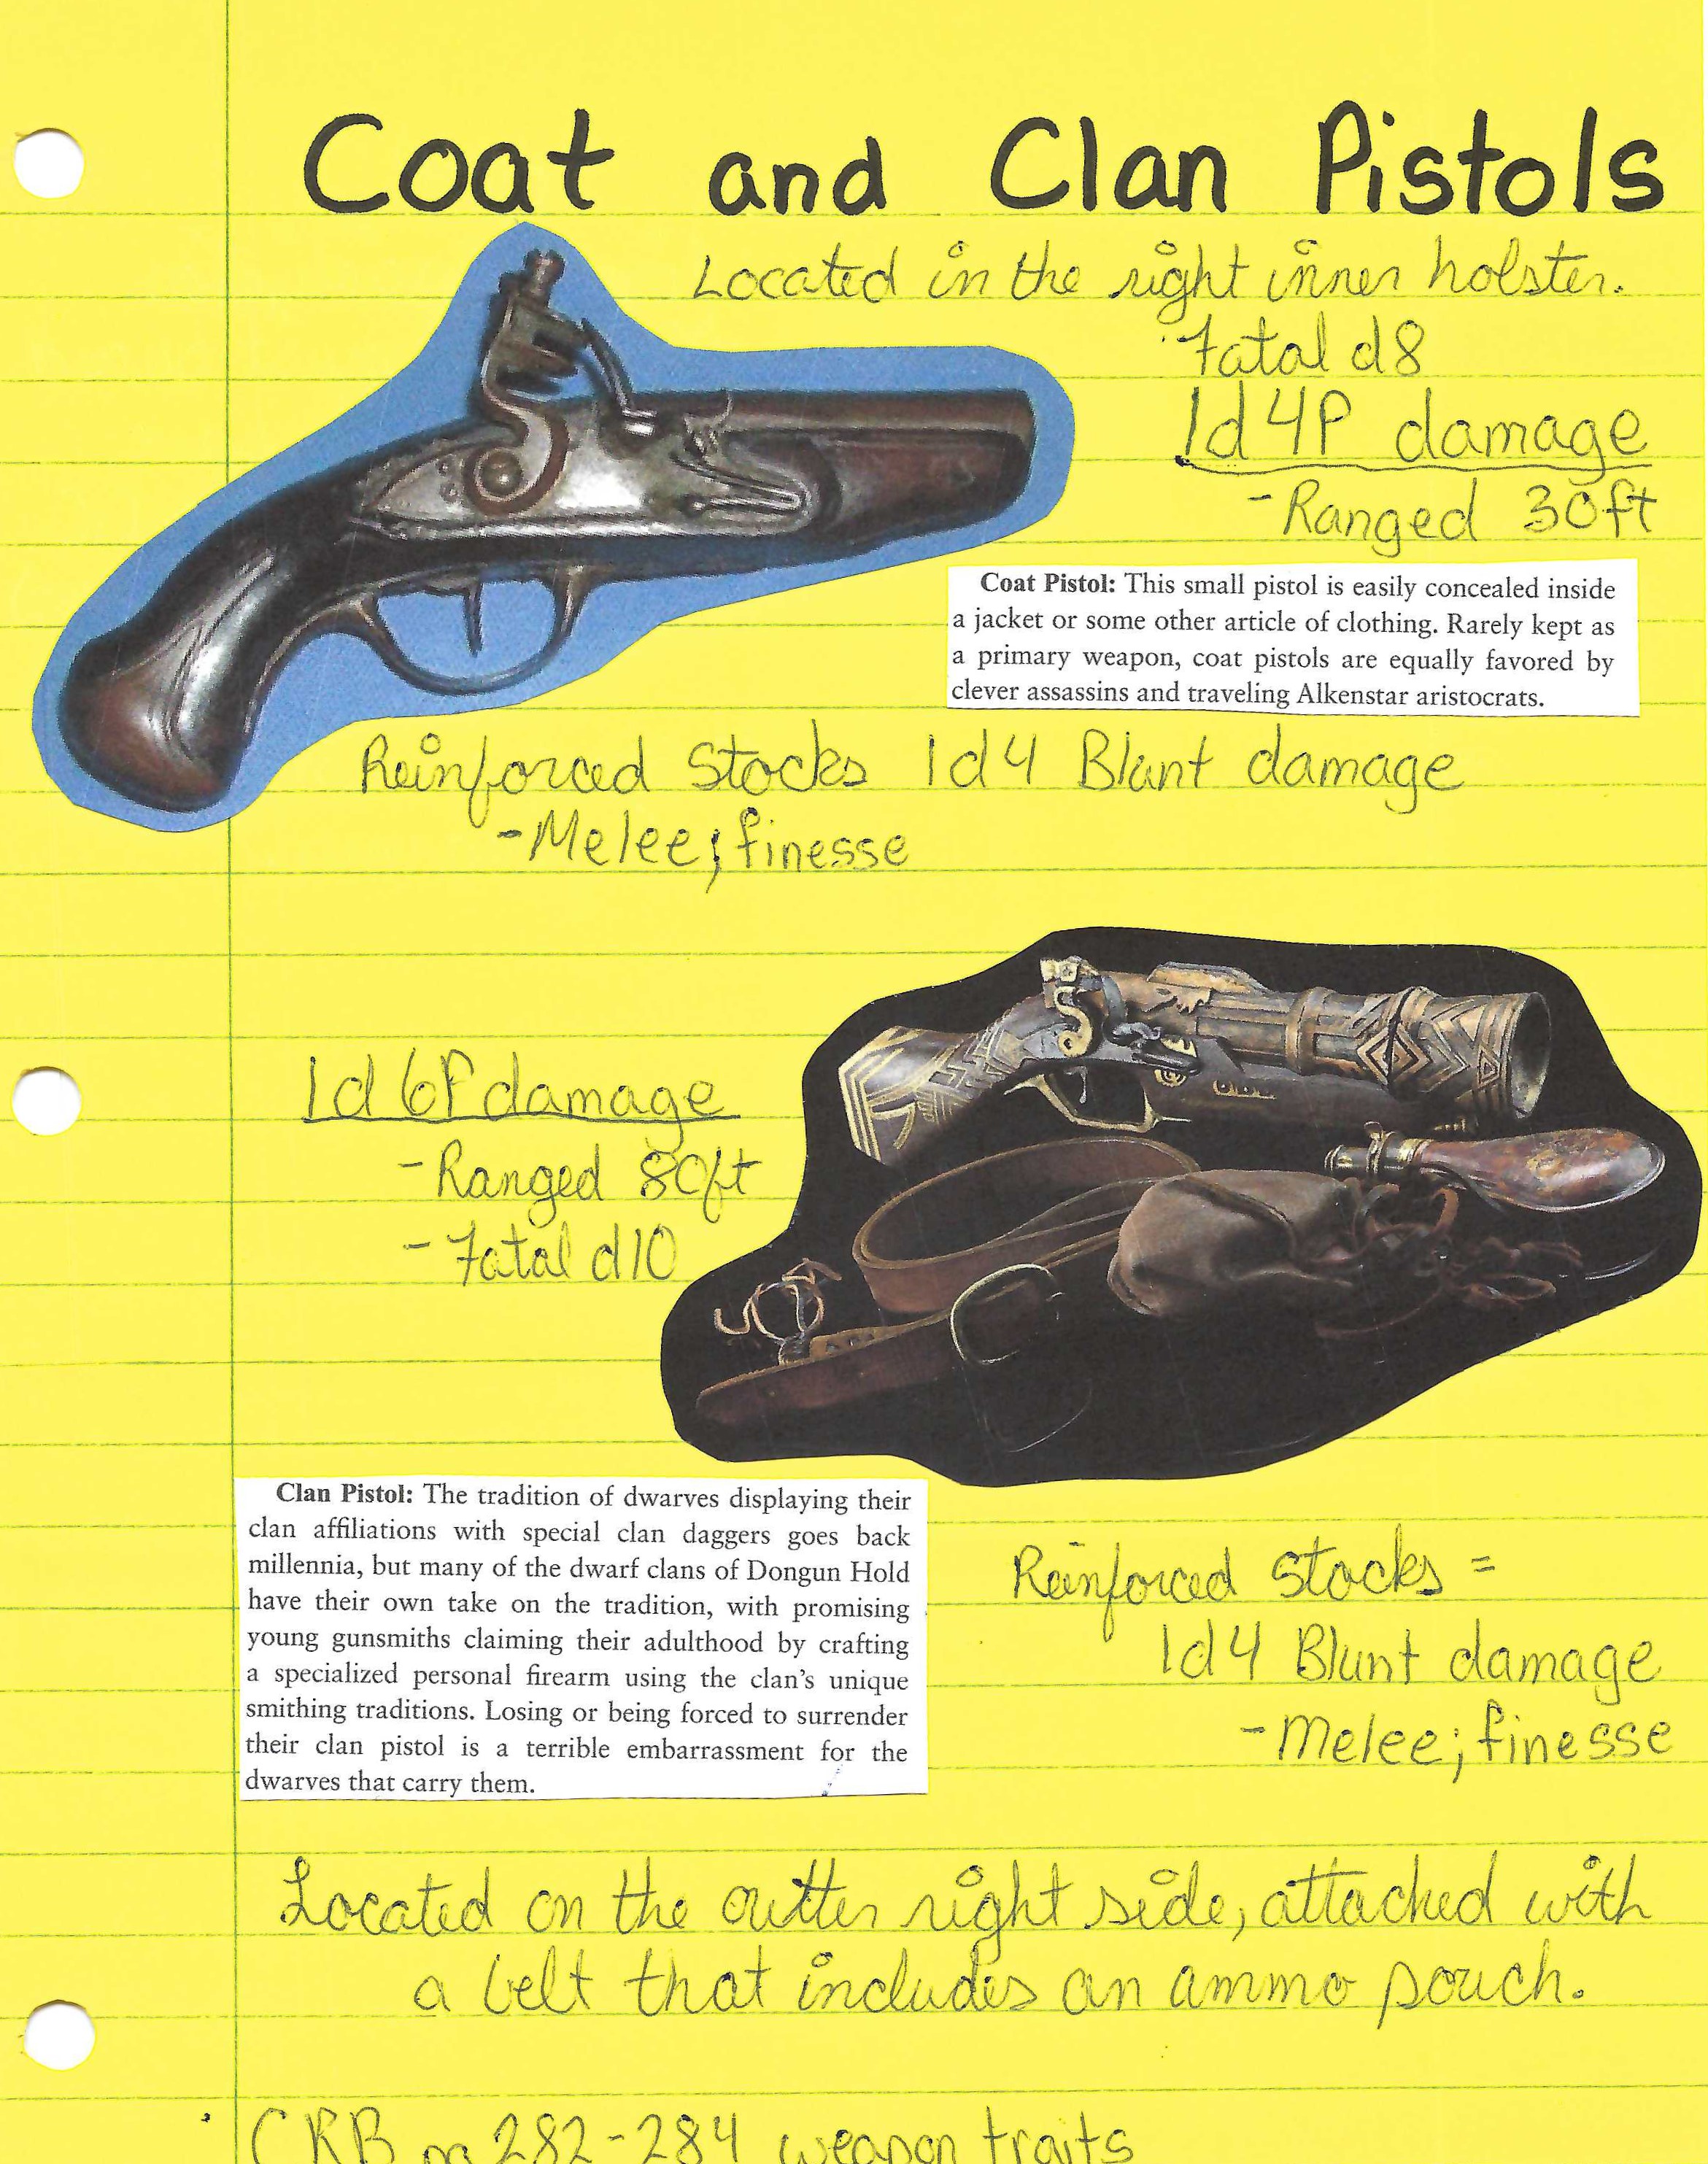 Coat and Clan Pistols
Located in the right inner holster.
Fatal d8
1d4P damage
-Ranged 30ft
Coat Pistol: This small pistol is easily concealed inside
a jacket or some other article of clothing. Rarely kept as
a primary weapon, coat pistols are equally favored by
clever assassins and traveling Alkenstar aristocrats.
Reinforced Stocks 1d4 Blunt damage
-Melee; finesse
1d6P damage
-Ranged 80ft
-Fatal d10
Clan Pistol: The tradition of dwarves displaying their
clan affiliations with special clan daggers goes back
millennia, but many of the dwarf clans of Dongun Hold
have their own take on the tradition, with promising
young gunsmiths claiming their adulthood by crafting
a specialized personal firearm using the clan's unique
smithing traditions. Losing or being forced to surrender
their clan pistol is a terrible embarrassment for the
dwarves that carry them.
Reinforced Stocks =
1d4 Blunt damage
-Melee; finesse
Located on the outter right side, attached with
a belt that includes an ammo pouch.
CRB pg 282-284 weapon traits